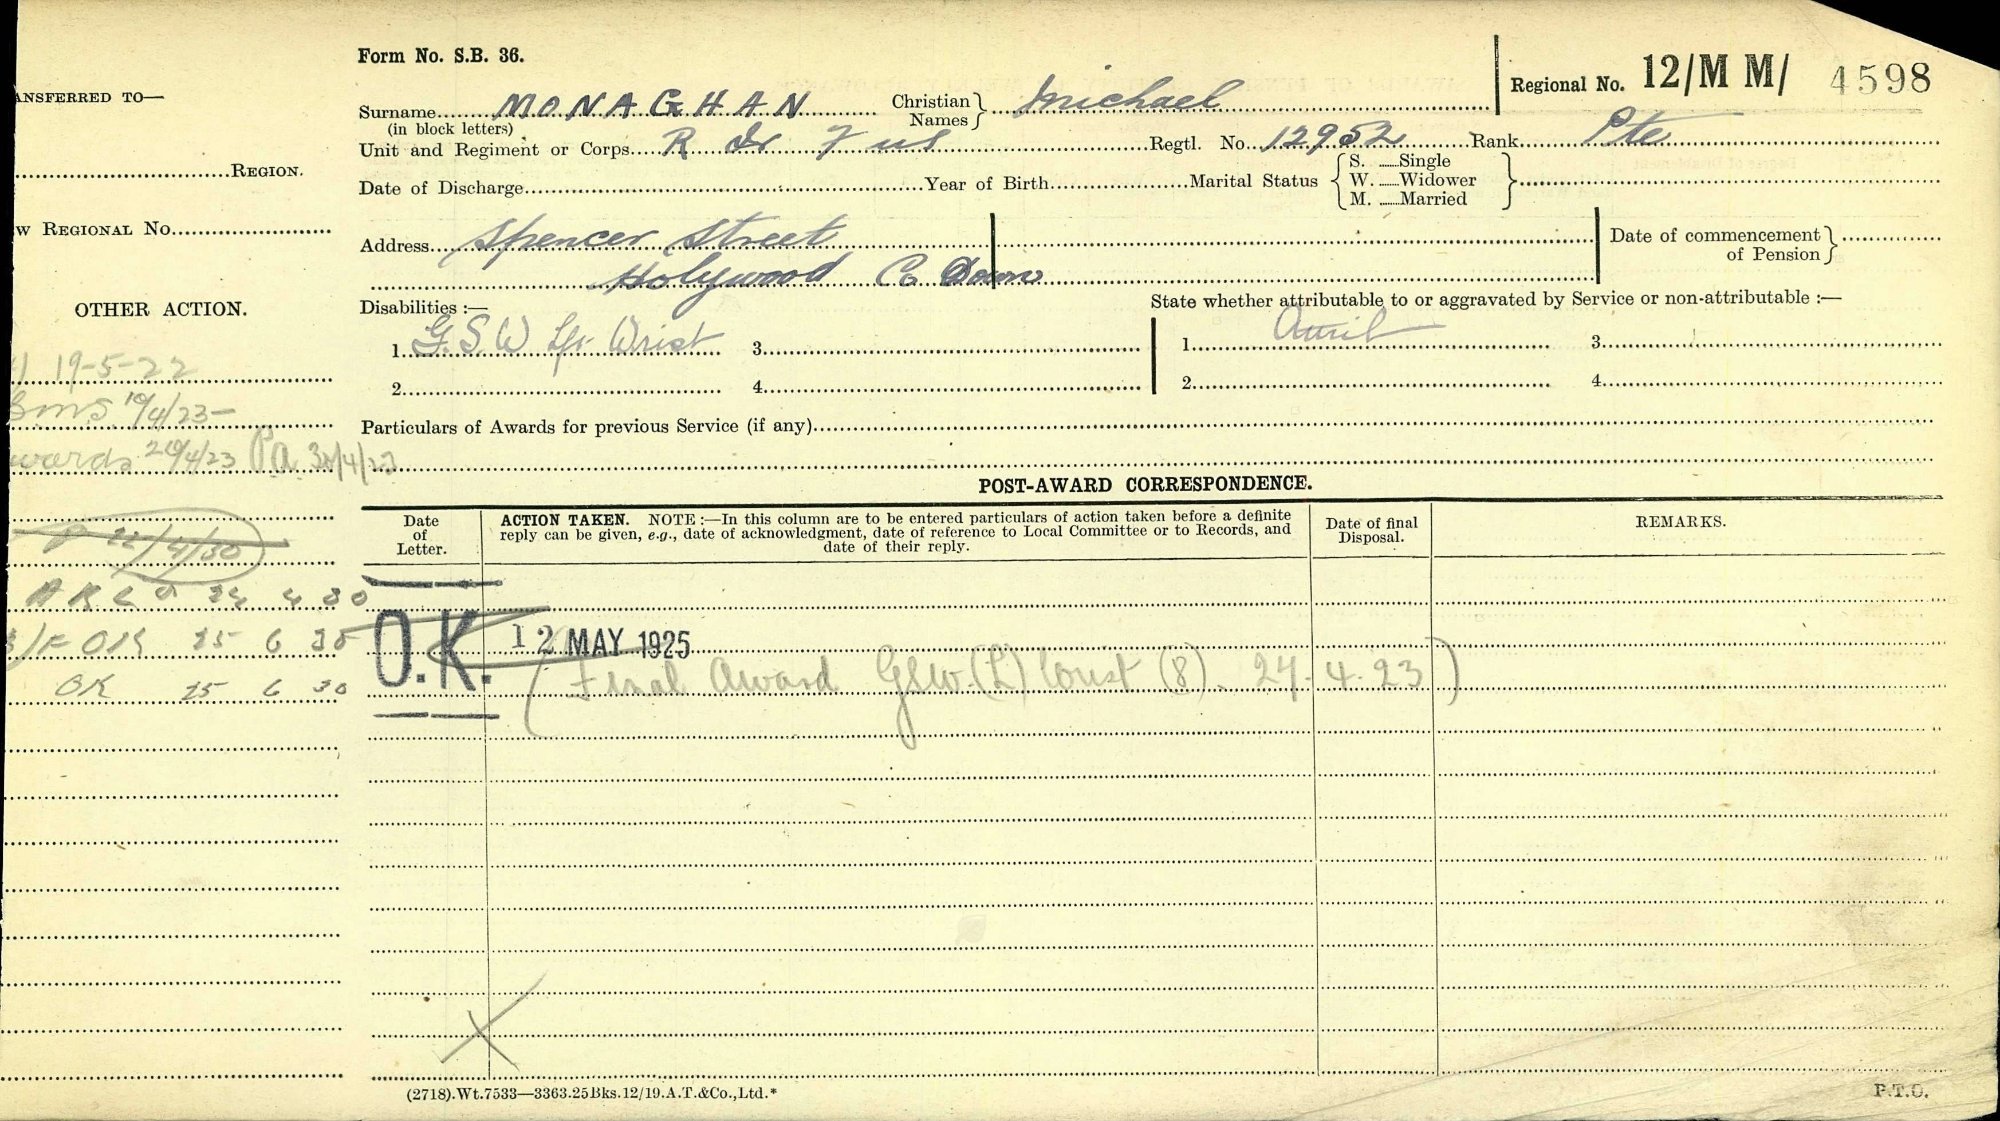 Form No. S.B. 36.
Regional No. 12/M M/ 4598
ANSFERRED TO—
Surname MONAGHAN Christian Names Michael
(in block letters)
Unit and Regiment or Corps R Ir Fus Regtl. No. 12952 Rank Pte
REGION.
Date of Discharge Year of Birth Marital Status S. Single W. Widower M. Married
W REGIONAL NO.
Address Spencer Street Date of commencement of Pension
Holywood Co Down
OTHER ACTION.
Disabilities :— State whether attributable to or aggravated by Service or non-attributable :—
1. G.S.W Wrist 3. 1. 3.
2. 4. 2. 4.
19-5-22
19/4/23—
Particulars of Awards for previous Service (if any)
wards 20/4/23 Pa 30/4/23
POST-AWARD CORRESPONDENCE.
Date of Letter.
ACTION TAKEN. NOTE :—In this column are to be entered particulars of action taken before a definite
reply can be given, e.g., date of acknowledgment, date of reference to Local Committee or to Records, and
date of their reply.
Date of final Disposal.
REMARKS.
22/4/30
24 4 30
25 6 30
O.K. 12 MAY 1925
OK 25 6 30
(Final Award GSW.(L) Wrist (8). 27.4.23)
(2718).Wt.7533—3363.25Bks.12/19.A.T.&Co.,Ltd.*
P.T.O.